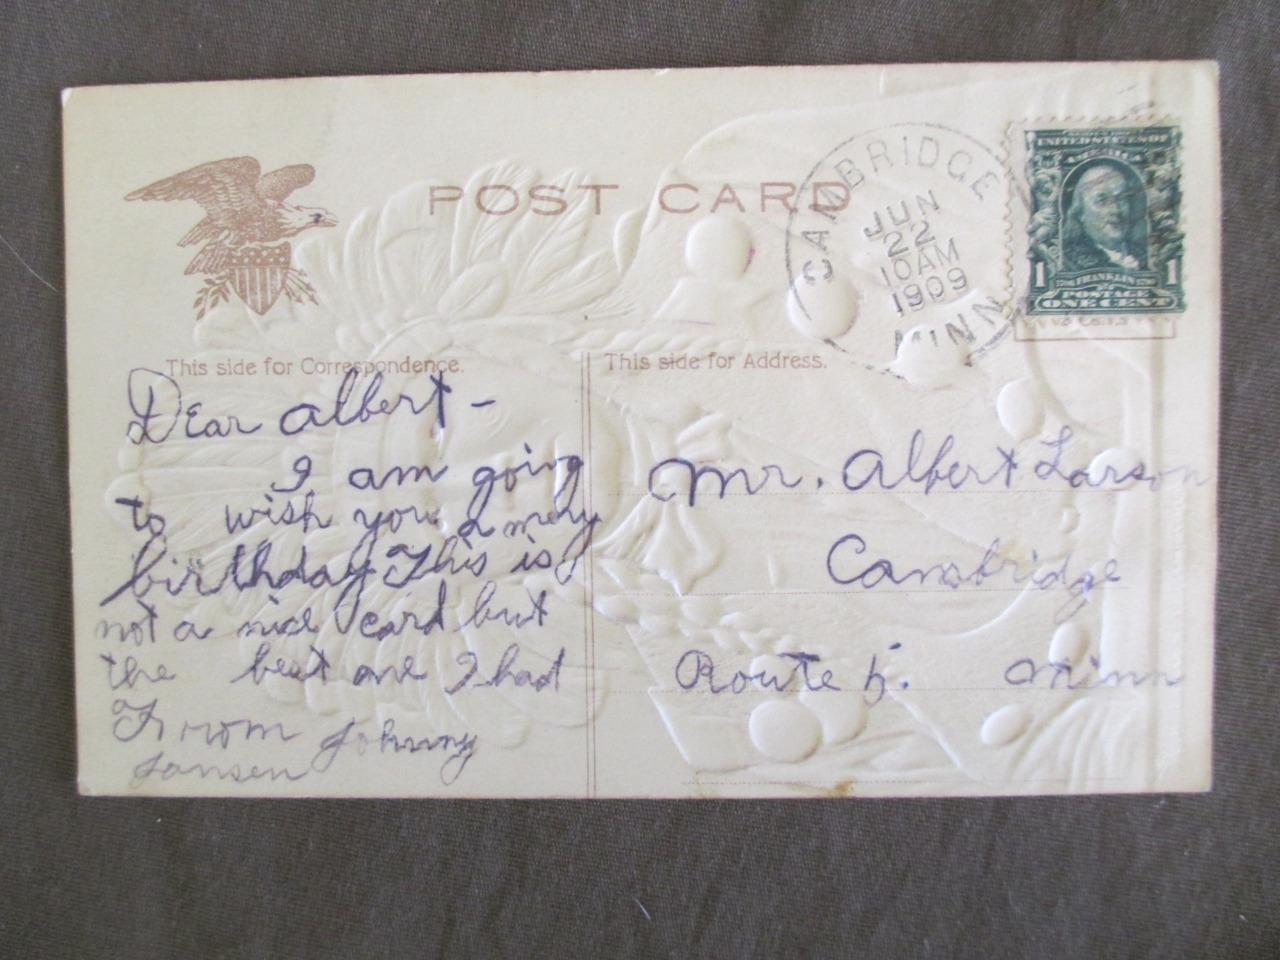 POST CARD
CAMBRIDGE
JUN
22
10AM
1909
MINN.
UNITED STATES OF
AMERICA
1 FRANKLIN 1
POSTAGE
ONE CENT
This side for Correspondence.
This side for Address.
Dear Albert -
I am going
to wish you a mery
birthday. This is
not a nice card but
the best one I had
From Johnny
Jansen
Mr. Albert Larson
Cambridge
Route 5. Minn